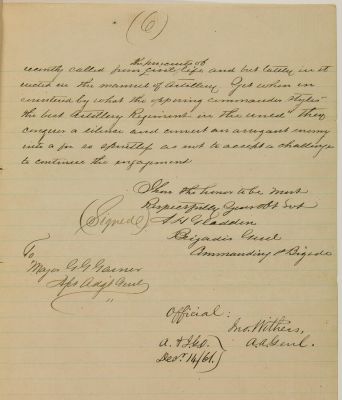 (6)
the pursuits of
recently called from civil life and but lately in st
ructed in the manual of Artillery. Yet when en
countered by what the opposing commander styles "
the best Artillery Regiment in the
conquer a silence and convert an arrogant enemy
into a foe so as not to accept a challenge
to continue the engagement
I have the honor to be most
Respectfully Your Obt Svt
(Signed) A H Gladden
Brigadier Genl
Commanding Brigade
To
Major G. G. Garner
Adjt Genl
Official:
Jno. Withers,
A. A. Genl.
A. & I.G.O.
Decr. 14/61.